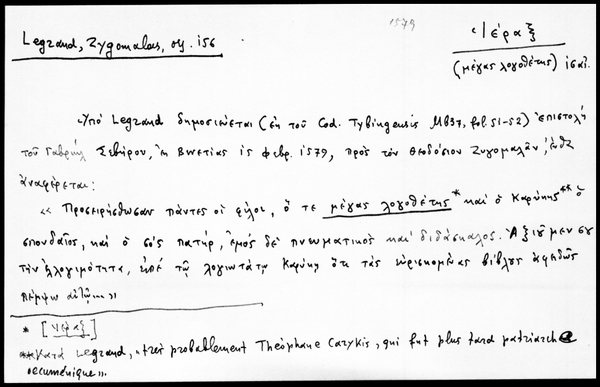 1579
Legrand, Zygomalas, σ. 156
Ἱέραξ
(μέγας λογοθέτης) ις΄ αἰ.
Ὑπό Legrand δημοσιεύεται (ἐκ τοῦ Cod. Tybingensis Mb37, fol. 51-52) ἐπιστολή
τοῦ Γαβριήλ Σεβήρου, ἐκ Βενετίας 15 Φεβρ. 1579, πρός τόν Θεοδόσιον Ζυγομαλᾶν, ἔνθα
ἀναφέρεται:
« Προσειρήσθωσαν πάντες οἱ φίλοι, ὅ τε μέγας λογοθέτης* καί ὁ Καρύκης** ὁ
σπουδαῖος, καί ὁ σός πατήρ, ἐμός δέ πνευματικός καί διδάσκαλος. Ἀξιῶ μέν σου
τήν ἐλλογιμότητα, εἰπέ τῷ λογιωτάτῳ Καρύκῃ ὅτι τάς εὑρισκομένας βίβλους ἀφειδῶς
πέμψω αὐτῷ... »
* [Ἱέραξ]
** Κατά Legrand, « très probablement Théophane Carykis, qui fut plus tard patriarche
oecuménique ».